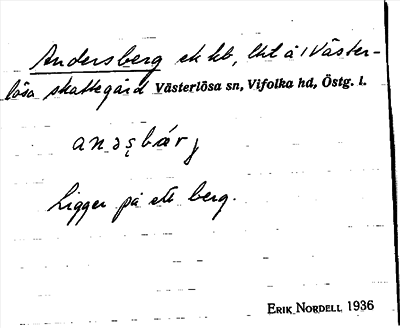 Andersberg ek hb, lht å 1 Väster-
lösa skattegård Västerlösa sn, Vifolka hd, Östg. l.
anəʂbárj
Ligger på ett berg.
ERIK NORDELL 1936